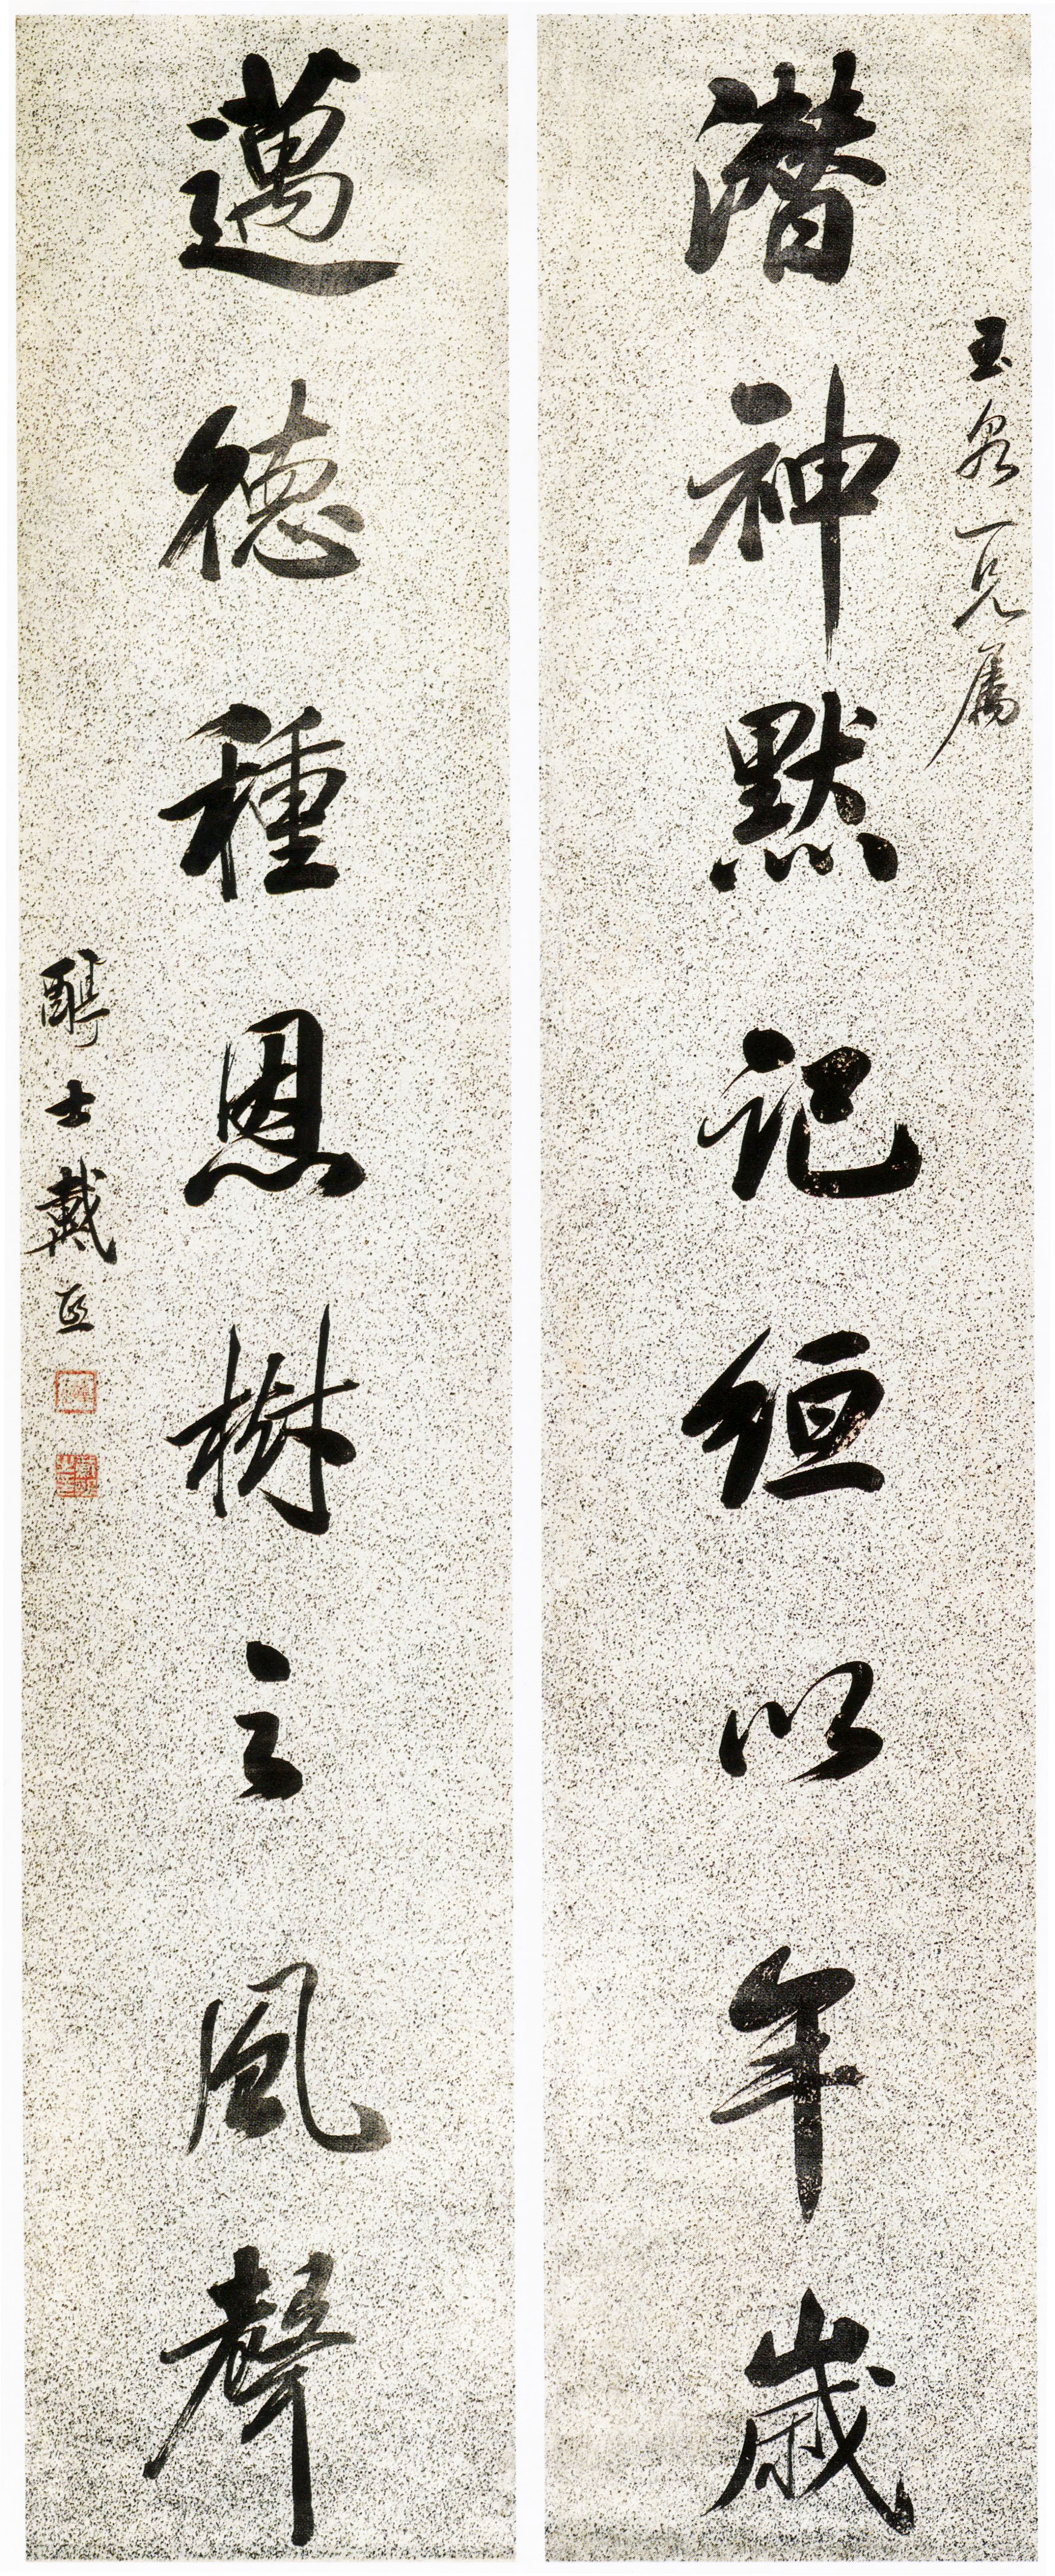 潛神默記緪以年歲
玉泉一兄屬
邁德種恩樹之風聲
醇士戴熙